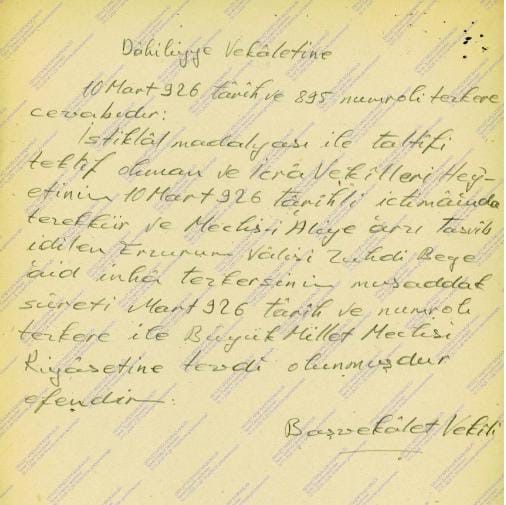 Dâhiliyye Vekâletine
10 Mart 926 târih ve 895 numrolı tezkere
cevabıdır:
İstiklâl madalyası ile taltîfi
teklîf olunan ve İcrâ Vekilleri Hey-
etinin 10 Mart 926 târihli ictimâında
tezekkür ve Meclis-i Âliye arzı tasvîb
idilen Erzurum Vâlisi Zühdi Beye
âid inhâ tezkersinin musaddak
sûreti Mart 926 târih ve numrolı
tezkere ile Büyük Millet Meclisi
Riyâsetine tevdî olunmuşdur
efendim.
Başvekâlet Vekili